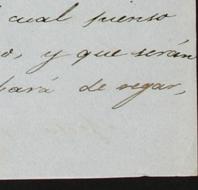 cual pienso
o, y que serán
bará de regar,